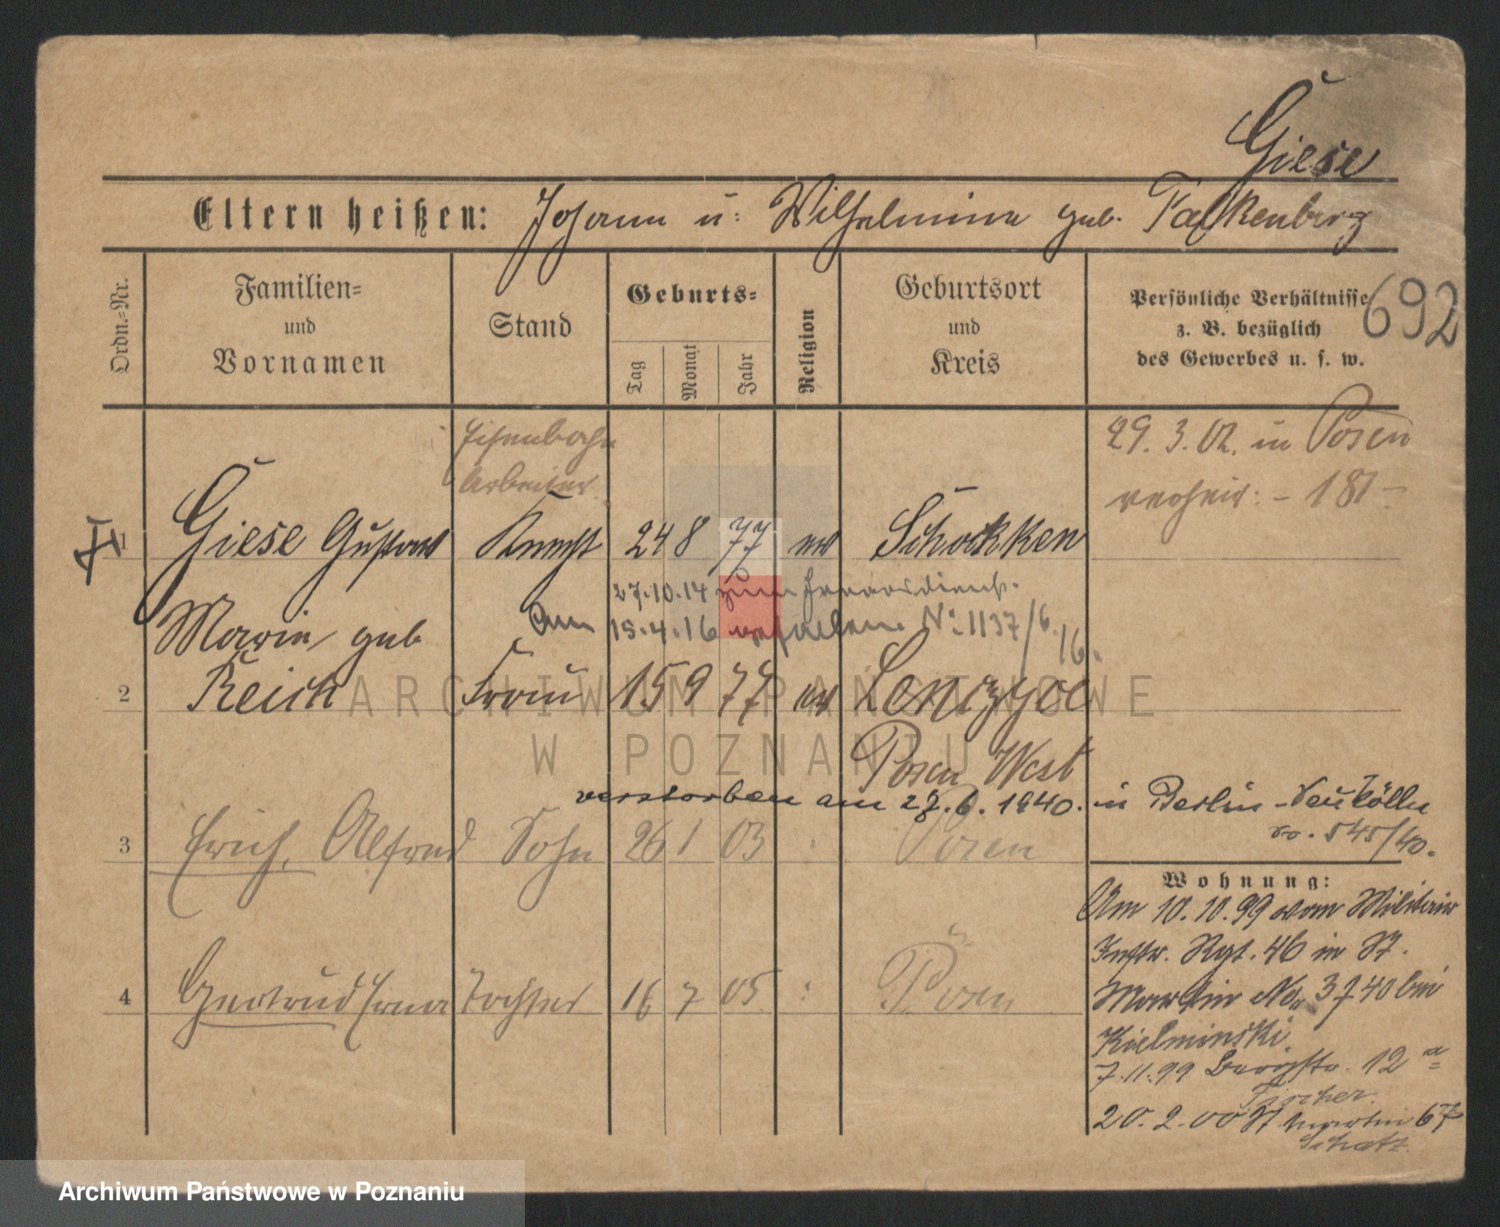 Giese
Eltern heißen: Johann u: Wilhelmine geb. Falkenberg
Ordn.-Nr.
Familien-
und
Vornamen
Stand
Geburts-
Tag
Monat
Jahr
Religion
Geburtsort
und
Kreis
Persönliche Verhältnisse
z. B. bezüglich
des Gewerbes u. s. w.
692
Eisenbahn
Arbeiter
29. 3. 02. in Posen
verheir: - 181 -
1 Giese Gustav Knecht 24 8 77 ev Schokken
27.10.14 zum Heeresdienst.
Am 15.4.16 gefallen. No. 1137/6./16.
Marie geb
2 Reich Frau 15 9 77 ev Lenczyce
Posen West
verstorben am 27.6.1940. in Berlin-Neukölln
545/40.
3 Erich, Alfred Sohn 26 1 03 Posen
4 Gertrud Erna Tochter 16 7 05 Posen
Wohnung:
Am 10.10.99 vom Militair
Inftr. Rgt. 46 in St.
Martin No. 37 40 bei
Kielminski.
7.11.99 12 a
Fischer.
20.2.00 St Martin 67
Schatz
ARCHIWUM PAŃSTWOWE
W POZNANIU
Archiwum Państwowe w Poznaniu